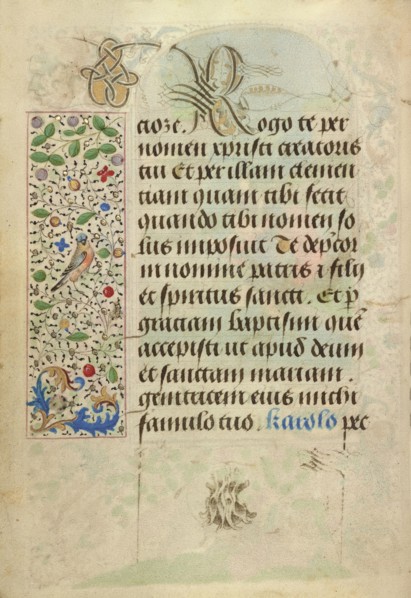 ctore. Rogo te per
nomen xpristi creatoris
tui Et per illam clemen
tiam quam tibi fecit
quando tibi nomen so
lus imposuit Te dep̄cor
in nomine patris ⁊ filij
et spiritus sancti. Et ꝑ
gratiam baptismi quē
accepisti ut apud deum
et sanctam mariam.
genitricem eius michi
famulo tuo. karolo pec